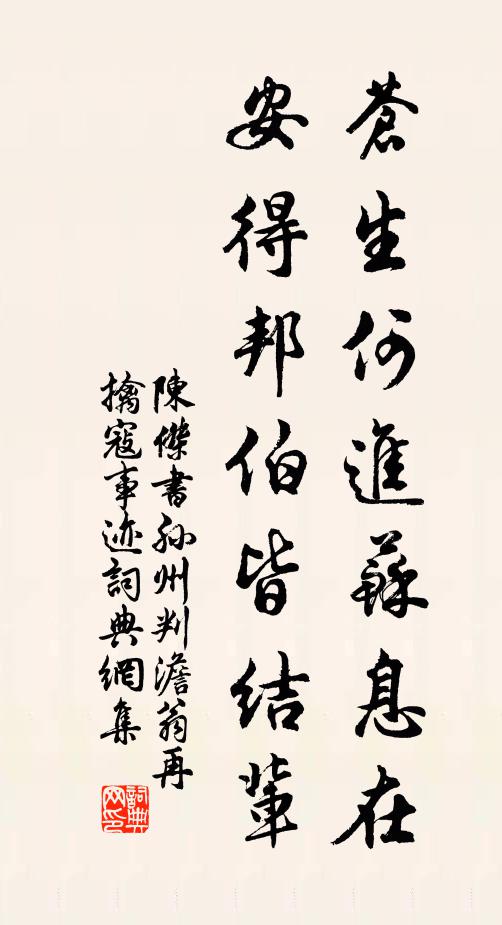 蒼生何進蘇息在
安得邦伯皆結輩
陳傑書孙州判澹翁再
擒寇事迹詞典網集
詞典网印